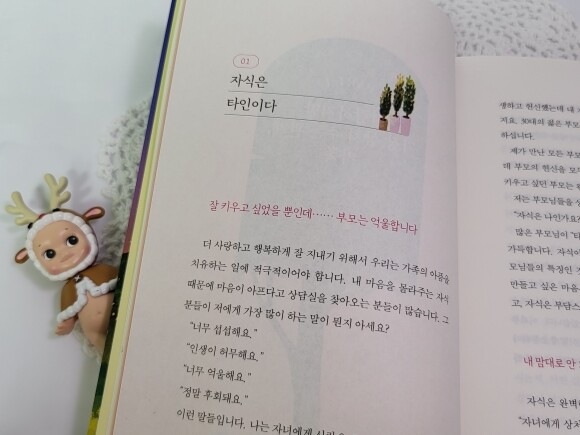 01
자식은
타인이다
잘 키우고 싶었을 뿐인데…… 부모는 억울합니다
더 사랑하고 행복하게 잘 지내기 위해서 우리는 가족의 아픔을
치유하는 일에 적극적이어야 합니다. 내 마음을 몰라주는 자식
때문에 마음이 아프다고 상담실을 찾아오는 분들이 많습니다. 그
분들이 저에게 가장 많이 하는 말이 뭔지 아세요?
"너무 섭섭해요."
"인생이 허무해요."
"너무 억울해요."
"정말 후회돼요."
이런 말들입니다. 나는 자녀에게
하고 헌신했는데 내
지요. 30대의 젊은 부모
하십니다.
제가 만난 모든 부모
래 부모의 헌신을 모
키우고 싶던 부모는
저는 부모님들을
"자식은 나인가요?
많은 부모님이 "타
가득합니다. 자식이
모님들의 특징인 것
만들고 싶은 마음
고, 자식은 부담스
내 맘대로 안
자식은 완벽
"자녀에게 상처